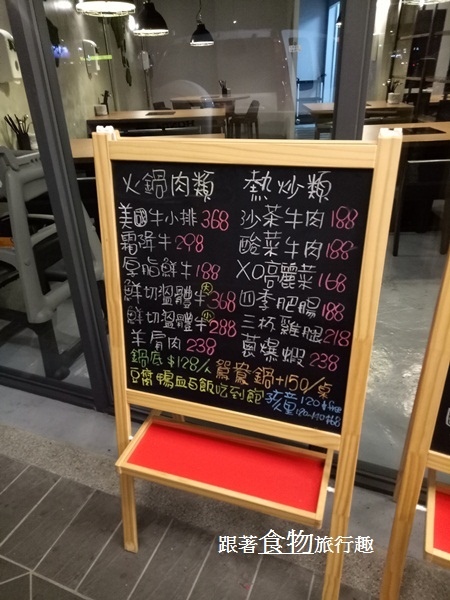 火鍋肉類
美國牛小排 368
霜降牛 298
厚脂鮮牛 188
鮮切溫體牛 大 368
鮮切溫體牛 小 288
羊肩肉 238
熱炒類
沙茶牛肉 188
酸菜牛肉 188
XO高麗菜 168
四季肥腸 188
三杯雞腿 218
蔥爆蝦 238
鍋底 $128/人 鴛鴦鍋+150/桌
豆腐鴨血白飯吃到飽
孩童
跟著食物旅行趣